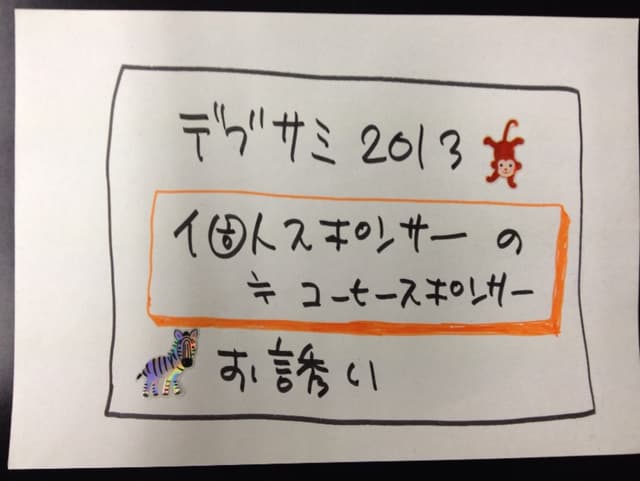 デブサミ 2013
個人スポンサー の
≒ コーヒースポンサー
お誘い